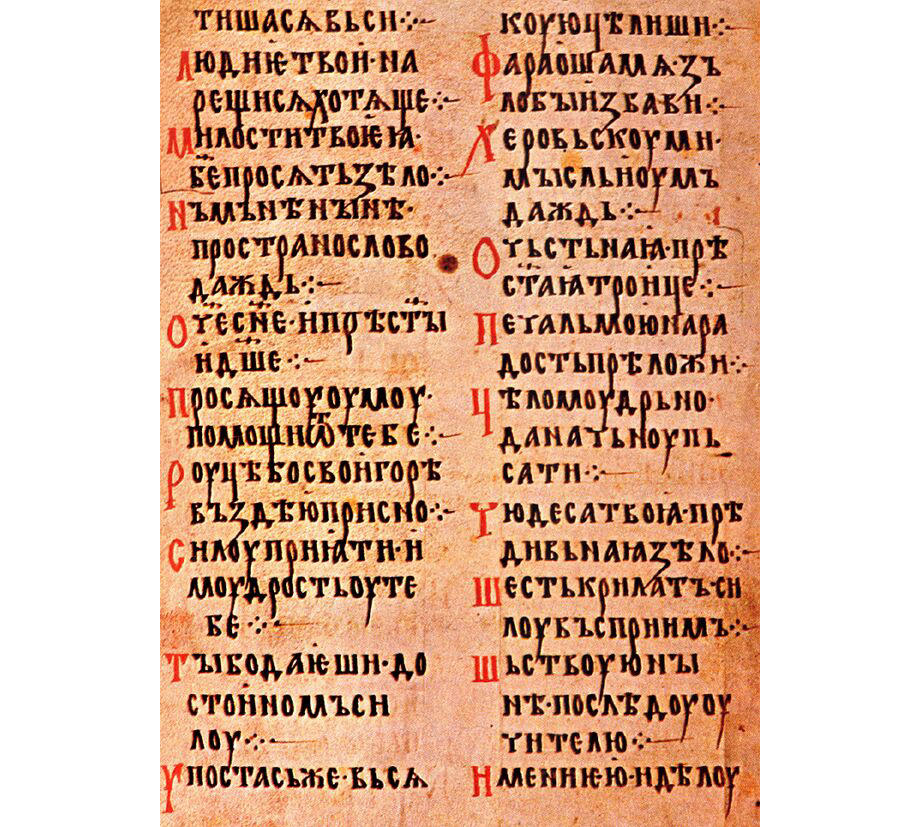 тишасѧвьси
людиѥтвои·на
рещисѧхотѧще
милоститвоѥꙗ·
б҃епросѧтьꙁѣло
нъмънѣнꙑнѣ·
пространослово
даждь
от҃есн҃е·ипрѣст҃ꙑ
ид҃ше
просѧщоуоумоу·
помощиѿтебе
роуцѣбосвоигорѣ
въꙁдѣюприсно
силоуприꙗти·и
моудростьоуте
бе
тꙑбодаѥши·до
стоиномъси
лоу
ѵпостасьже·вьсѧ
коуюцѣлиши
фараошамѧ·ꙁъ
лобꙑиꙁбави
херовьскоуми·
мꙑсльноумъ
даждь
очьстьнаꙗ·прѣ
с҃таꙗтроице
печальмоюнара
достьпрѣложи
цѣломоудрьно·
даначьноупь
сати
чюдесатвоꙗ·прѣ
дивьнаꙗꙁѣло
шестькрилатъ·си
лоувъсприимъ
шьствоуюнꙑ
нѣ·послѣдоуоу
чителю
имениѥю·идѣлоу